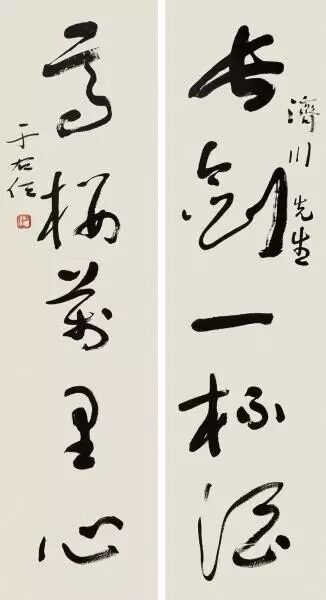 濟川先生
長劍一杯酒
高樓萬里心
于右任